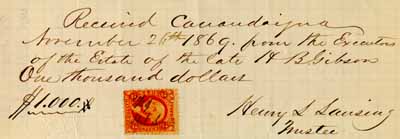 Received Canandaigua
November 26th 1869. from the Executors
of the Estate of the late H B Gibson
One thousand dollars
$1.000
Henry S Lansing
Trustee